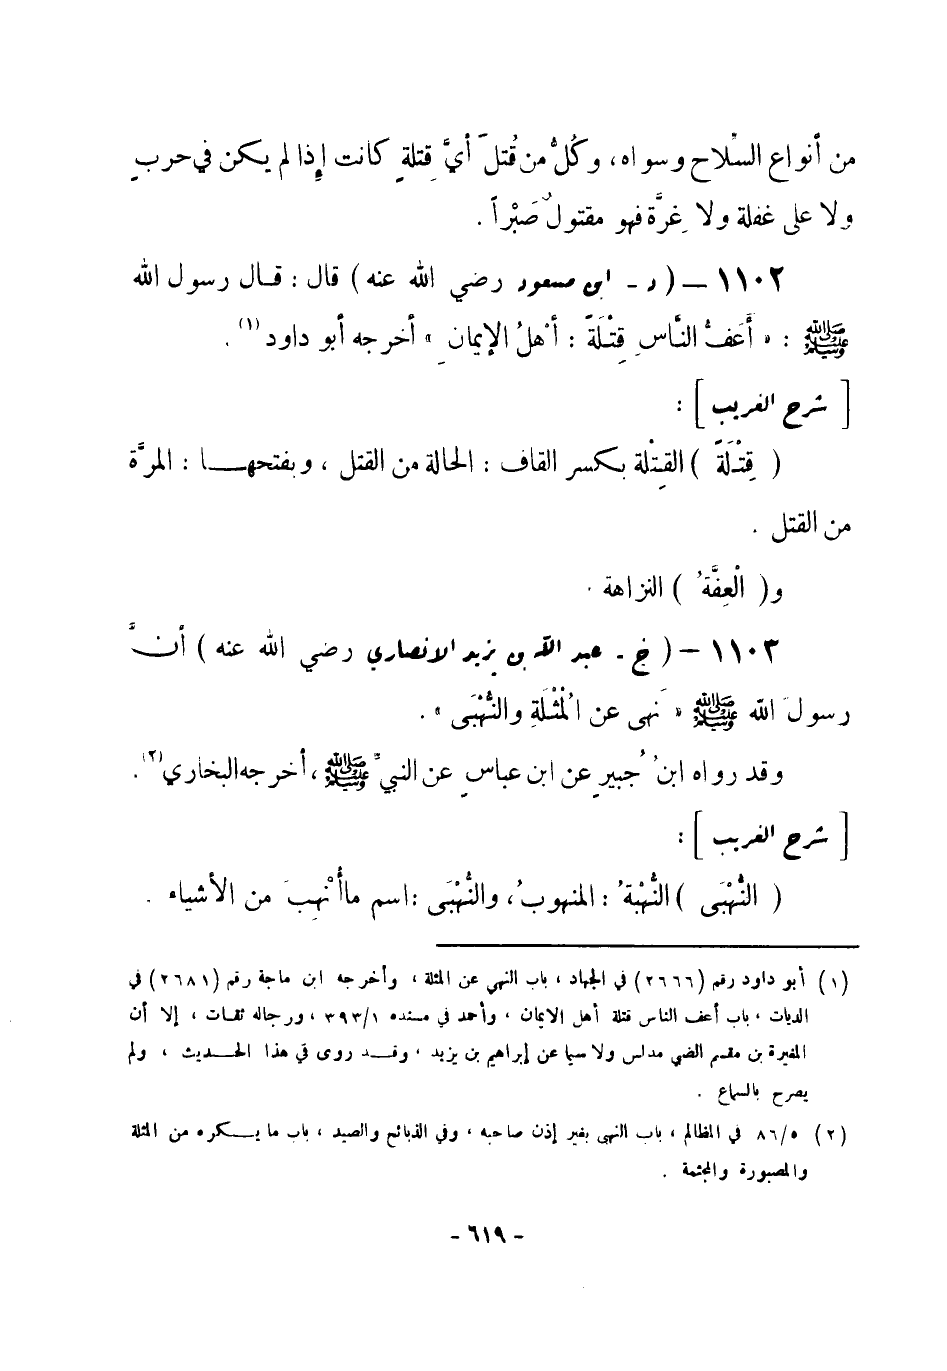 من أنواع السِّلاح وسواه، وكُلُّ من قُتلَ أيَّ قِتلةٍ كانت إِذا لم يكن في حربٍ
ولا على غفلة ولا غِرَّة فهو مقتولٌ صَبْراً .
١١٠٢ – ( د - ابن مسعود رضي الله عنه ) قال : قال رسول الله
ﷺ : « أَعَفُّ النَّاسِ قِتْلَةً : أَهْلُ الإِيمانِ » أخرجه أبو داود (١) .
[ شرح الغريب ] :
( قِتْلَةً ) القِتْلة بكسر القاف : الحالة من القتل ، وبفتحها : المرَّة
من القتل .
و( الْعِفَّةُ ) النزاهة .
١١٠٣ – ( خ - عبد الله بن يزيد الانصاري رضي الله عنه ) أنَّ
رسولَ الله ﷺ « نَهى عن الْمُثْلَةِ والنُّهْبَى » .
وقد رواه ابنُ جُبيرٍ عن ابن عباسٍ عن النبيِّ ﷺ ، أخرجه البخاري (٢) .
[ شرح الغريب ] :
( النُّهْبَى ) النُّهْبَةُ : المنهوبُ ، والنُّهْبَى : اسم ما أُنْهِبَ من الأشياء .
(١) أبو داود رقم (٢٦٦٦) في الجهاد ، باب النهي عن المثلة ، وأخرجه ابن ماجة رقم (٢٦٨١) في
الديات ، باب أعف الناس قتلة أهل الايمان ، وأحمد في مسنده ٣٩٣/١ ، ورجاله ثقات ، إلا أن
المغيرة بن مقسم الضبي مدلس ولا سيما عن إبراهيم بن يزيد ، وقد روى في هذا الحديث ، ولم
يصرح بالسماع .
(٢) ٨٦/٥ في المظالم ، باب النهى بغير إذن صاحبه ، وفي الذبائح والصيد ، باب ما يكره من المثلة
والمصبورة والمجثمة .
- ٦١٩ -